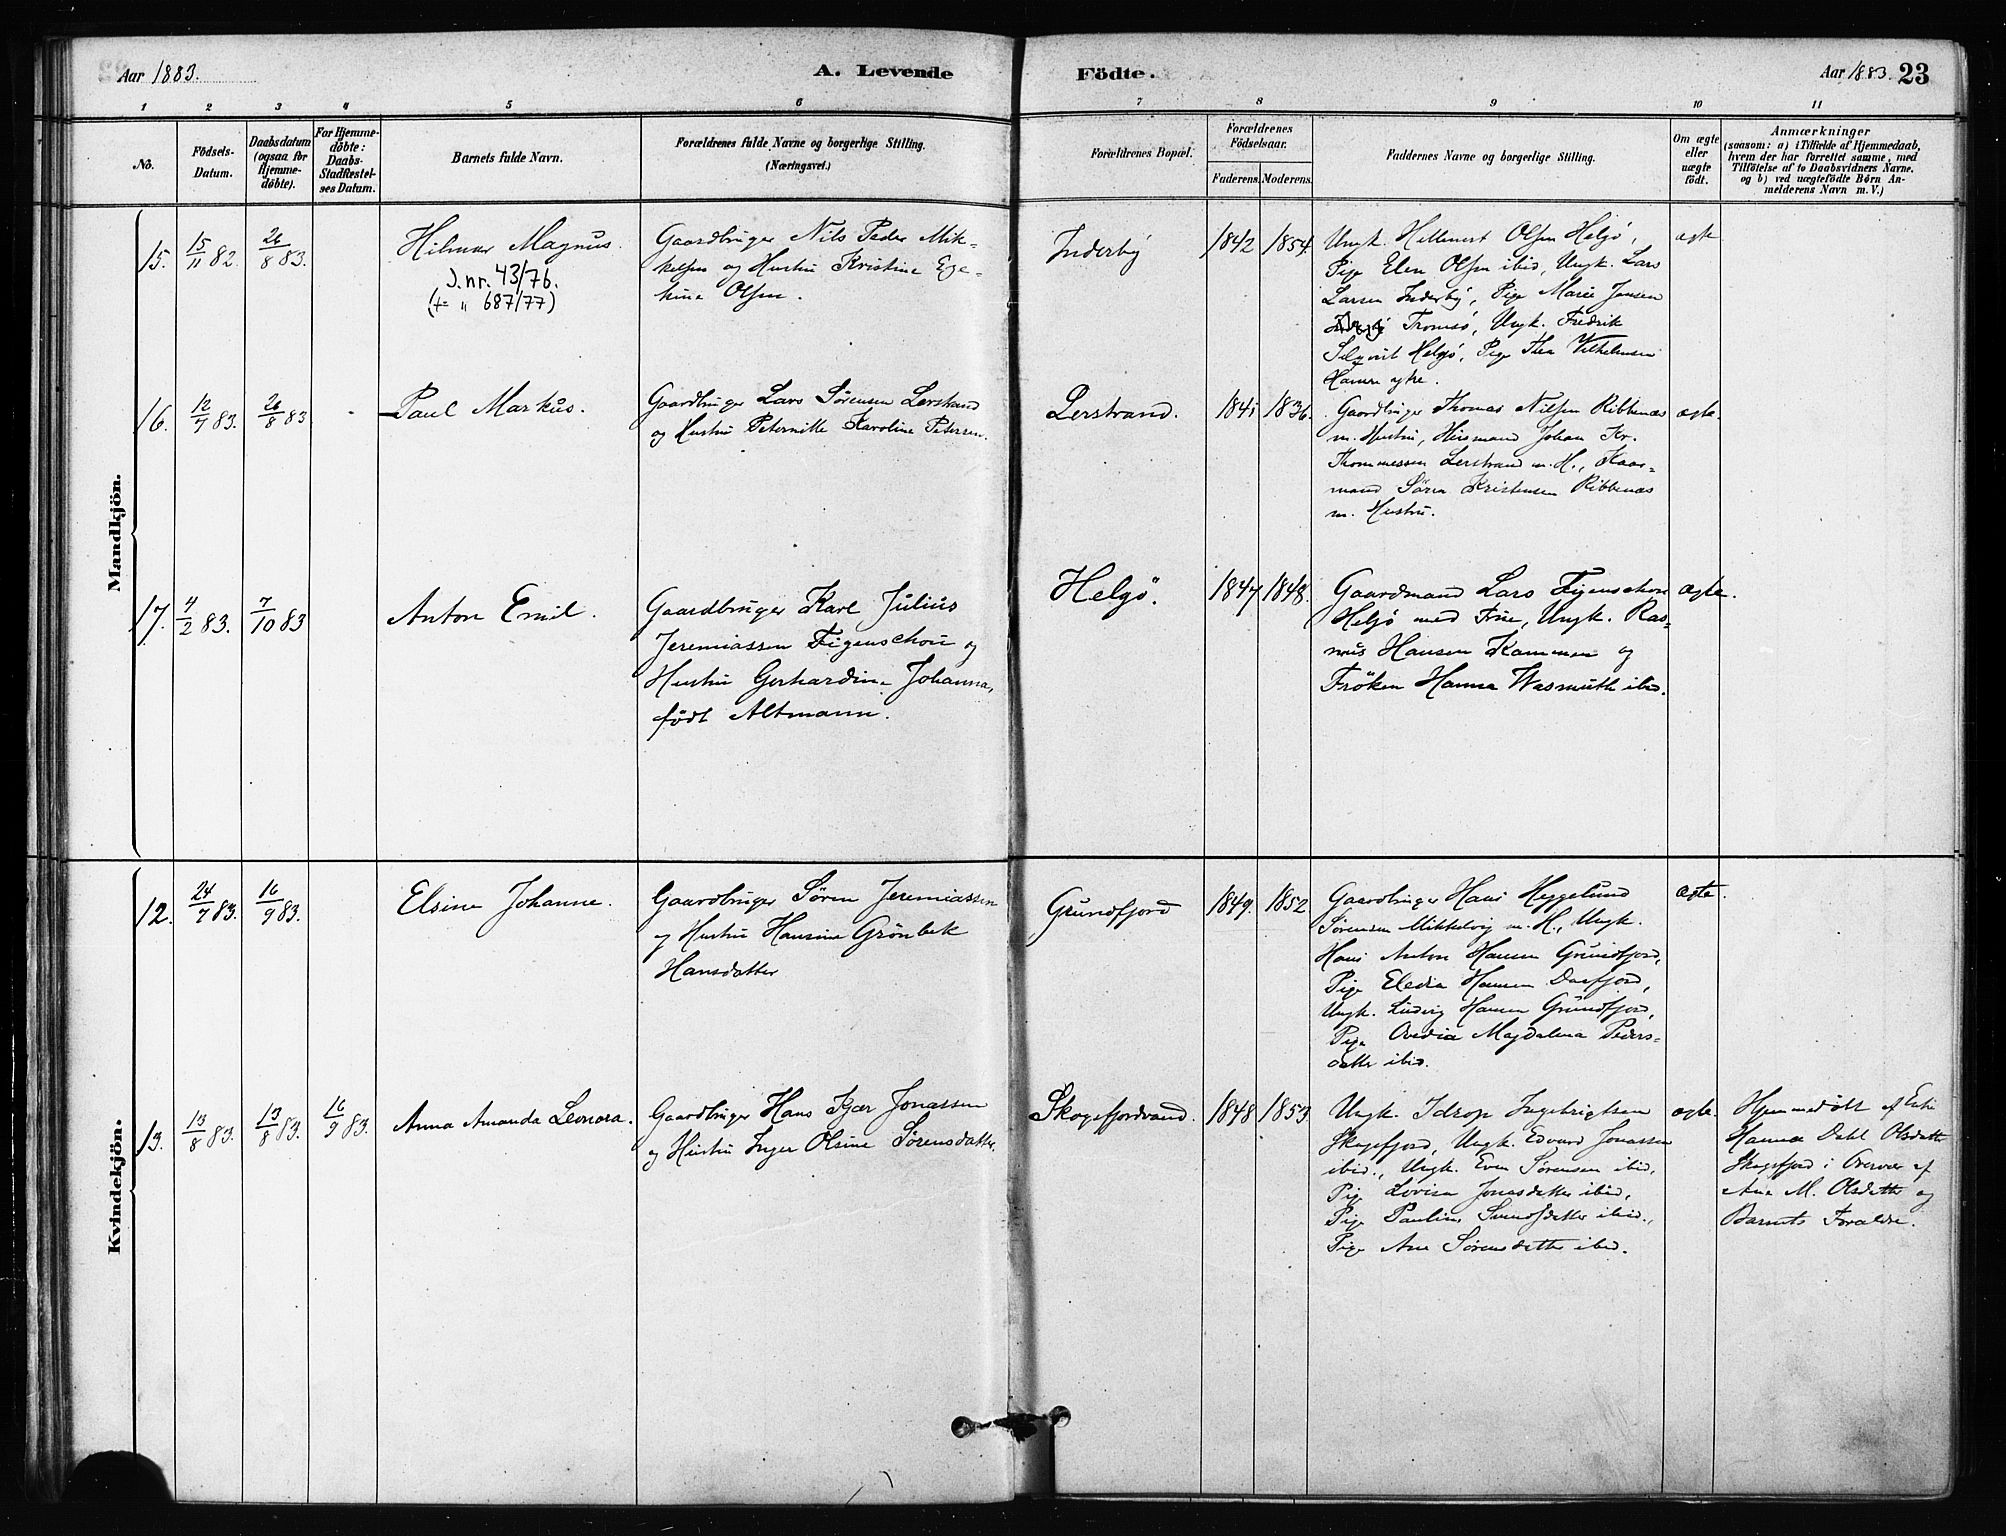 Aar 1883.
A. Levende
Födte.
Aar 1883. 23
1 2 3 4 5 6 7 8 9 10 11
No.
Födsels-
Datum.
Daabsdatum
(ogsaa for
Hjemme-
døbte).
For Hjemme-
döbte:
Daabs-
Stadfæstel-
ses Datum.
Barnets fulde Navn.
Forældrenes fulde Navne og borgerlige Stilling.
(Næringsvei.)
Forældrenes Bopæl.
Forældrenes
Födselsaar.
Faderens. Moderens.
Faddernes Navne og borgerlige Stilling.
Om ægte
eller
uægte
födt.
Anmærkninger
(saasom: a) i Tilfælde af Hjemmedaab,
hvem der har forrettet samme, med
Tilföielse af to Daabsvidners Navne.
og b) ved uægtefödte Börn An-
melderens Navn m. V.)
Mandkjön.
15. 15/11 82. 26/8 83.
Hilmar Magnus.
J. nr. 43/76.
(+ " 687/77)
Gaardbruger Nils Peder Mik-
kelsen og Hustru Kristine Ege-
kine Olsen.
Inderby
1842 1854.
Ungk. Hellmert Olsen Helgö,
Pige Elen Olsen ibid, Ungk. Lars
Larsen Inderby, Pige Marie Jensen
Tromsö, Ungk. Fredrik
Helgö, Pige Thea Vilhelmsen
ægte
16. 12/7 83. 26/8 83
Paul Markus.
Gaardbruger Lars Sörensen Lerstrand
og Hustru Peternille Karoline Petersen.
Lerstrand.
1841 1836.
Gaardbruger Thomas Nilsen Ribbenæs
m. Hustru, Husmand Johan Kr.
Thommessen Lerstrand m. H., Kaar-
mand Sören Kristensen Ribbenæs
m. Hustru.
ægte.
17. 4/2 83. 7/10 83
Anton Emil.
Gaardbruger Karl Julius
Jeremiassen Figenschou og
Hustru Gerhardine Johanna,
født Altmann.
Helgö.
1847 1848.
Gaardmand Lars Figenschou
Helgö med Frue, Ungk. Ras-
mus Hansen Kammen og
Fröken Hanna Wasmuth ibid.
ægte.
Kvindekjön.
12. 24/7 83. 16/9 83.
Elsine Johanne.
Gaardbruger Sören Jeremiassen
og Hustru Hansine Grönbek
Hansdatter
Grundfjord
1849. 1852
Gaardbruger Hans Heggelund
Sörensen Mikkelvig m. H., Ungk.
Hans Anton Hansen Grundfjord,
Pige Eledia Hansen Dafjord,
Ungk. Ludvig Hansen Grundfjord,
Pige Ovedia Magdalena Peders-
datter ibid.
ægte.
13. 13/8 83. 13/8 83. 16/9 83.
Anna Amanda Leonora.
Gaardbruger Hans Kjær Jonassen
og Hustru Inger Olsine Sörensdatter.
Skogsfjordvand.
1848 1853.
Ungk. Idrop Ingebrigtsen
Skogsfjord, Ungk. Edvard Jonassen
ibid., Ungk. Even Sörensen ibid,
Pige Lovisa Jonasdatter ibid,
Pige Pauline datter ibid.,
Pige Ane Sörensdatter ibid.
ægte.
Hjemmedöbt af
Hanna Dahl Olsdatter
Skogsfjord i Overvær af
Ane M. Olsdatter og
Barnets Forældre.